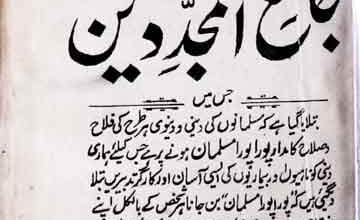 جامع المجددین
جس میں
بتلایا گیا ہے کہ مسلمانوں کی دینی و دنیوی ہر طرح کی فلاح
و صلاح کا مدار پورا پورا مسلمان ہونے پر ہے جس کیلئے ہماری
دینی کوتاہیوں و بیماریوں کی ایسی آسان اور کارگر تدبیریں بتلا
دی گئی ہیں کہ "پورا پورا مسلمان" بن جانا ہر شخص کے بالکل اپنے